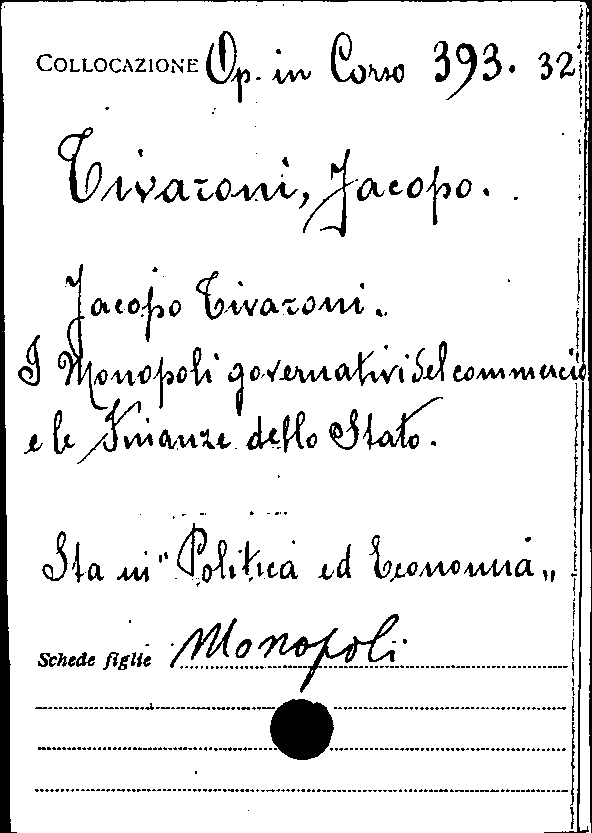 COLLOCAZIONE Op. in Corso 393. 32
Tivaroni, Jacopo.
Jacopo Tivaroni.
I Monopoli governativi del commercio
e le Finanze dello Stato.
Sta in "Politica ed Economia„
Schede figlie Monopoli